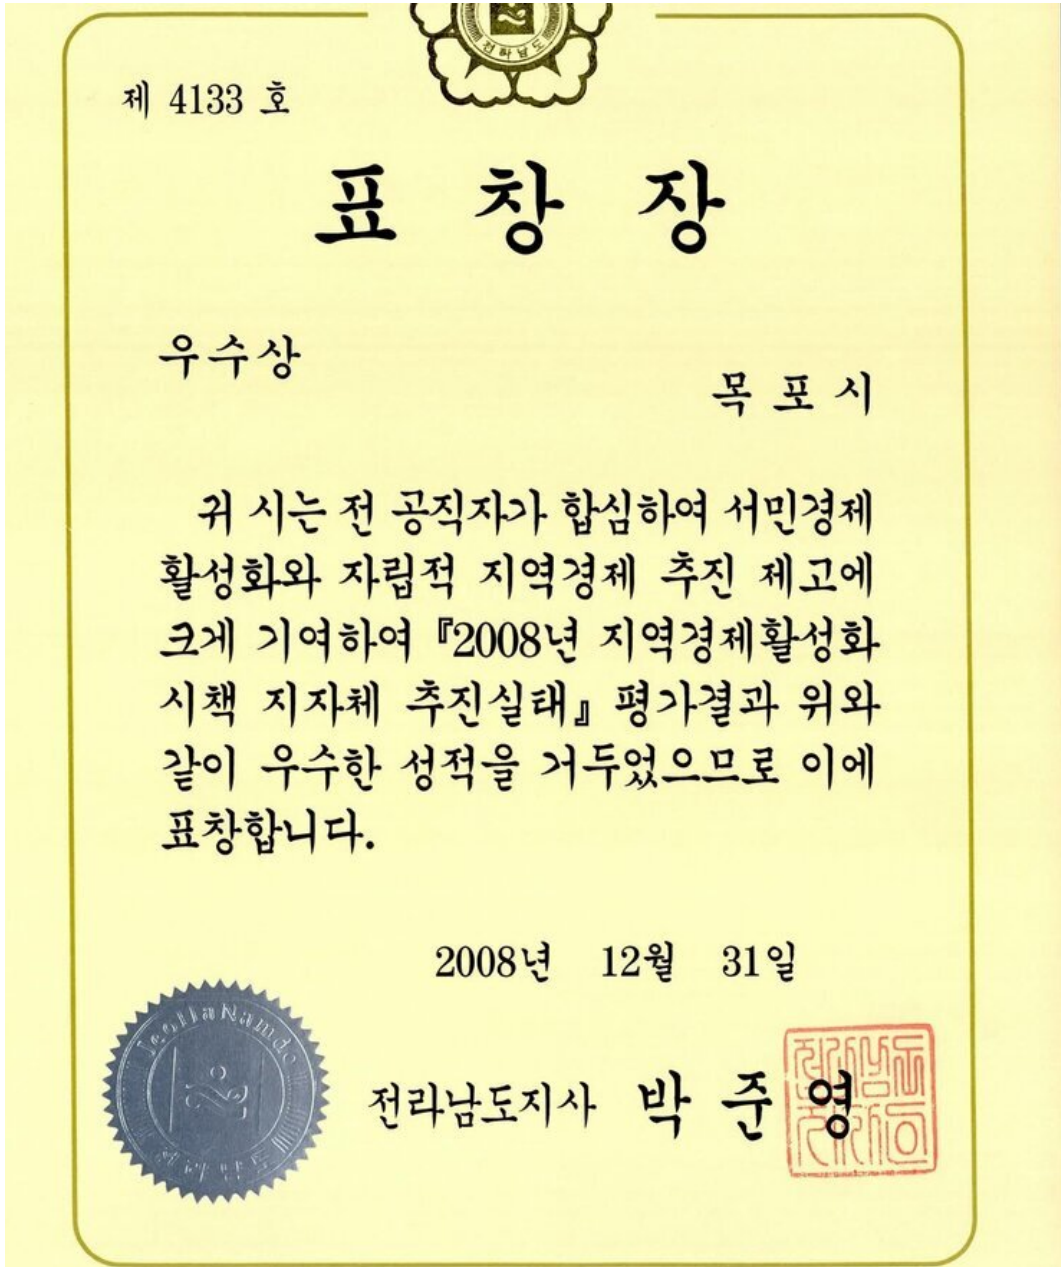 전라남도
제 4133 호
표 창 장
우수상
목 포 시
귀 시는 전 공직자가 합심하여 서민경제
활성화와 자립적 지역경제 추진 제고에
크게 기여하여 『2008년 지역경제활성화
시책 지자체 추진실태』 평가결과 위와
같이 우수한 성적을 거두었으므로 이에
표창합니다.
2008년 12월 31일
JeollaNamdo
전라남도
전라남도지사 박 준 영